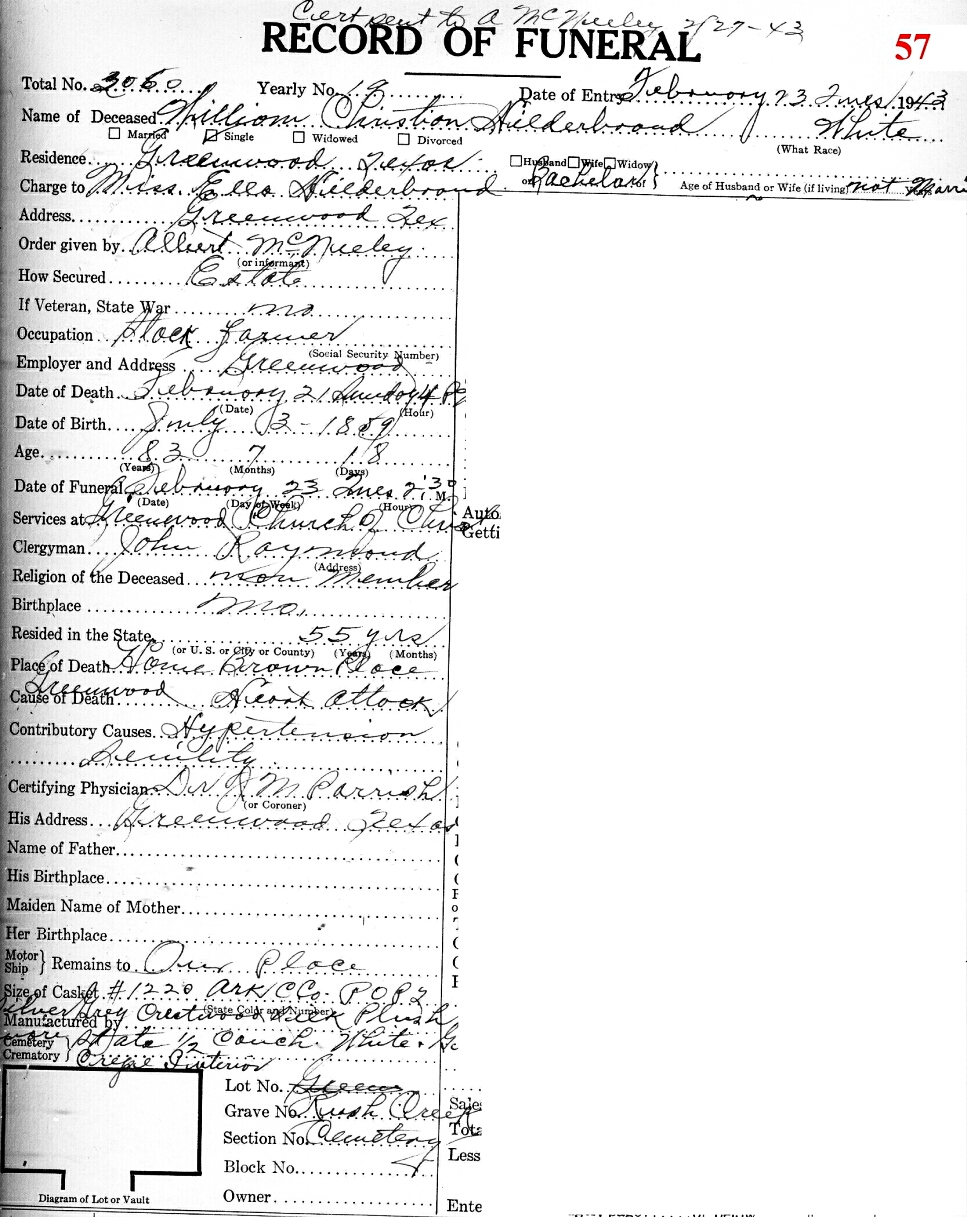 Cert sent to A McNeeley 2/27-43
RECORD OF FUNERAL
57
Total No. 3060 Yearly No. 19 Date of Entry February 23 Tues 1943
Name of Deceased William Christian Hilderbrand White
Married Single Widowed Divorced (What Race)
Residence Greenwood Texas Husband Wife Widow or Bachelor of
Charge to Miss. Ella Hilderbrand Age of Husband or Wife (if living) not Marri
Address Greenwood Tex
Order given by Albert McNeeley
(or informant)
How Secured Estate
If Veteran, State War no
Occupation Stock Farmer
(Social Security Number)
Employer and Address Greenwood
Date of Death February 21 Sunday 4 P
(Date) (Hour)
Date of Birth July 3 - 1859
Age 83 7 18
(Years) (Months) (Days)
Date of Funeral February 23 Tues 2:30 M.
(Date) (Day of Week) (Hour)
Services at Greenwood Church of Chris Auto
Getti
Clergyman John Raymond
(Address)
Religion of the Deceased non Member
Birthplace Mo.
Resided in the State 55 yrs
(or U. S. or City or County) (Years) (Months)
Place of Death Home Brown Place
Greenwood
Cause of Death Heart Attack
Contributory Causes Hypertension
Senility
Certifying Physician Dr J M Parrish
(or Coroner)
His Address Greenwood Texas
Name of Father
His Birthplace
Maiden Name of Mother
Her Birthplace
Motor Ship } Remains to Our Place
Size of Casket #1220 Ark C Co. POP 2
(State Color and Number)
Silver Grey Crestwood Silk Plush
Manufactured by
Cemetery Crematory } State 1/2 Couch. White
Crepe Interior
Lot No. Green
Grave No. Rush Creek Sale
Section No. Cemetery Tota
Block No. Less
Owner Ente
Diagram of Lot or Vault